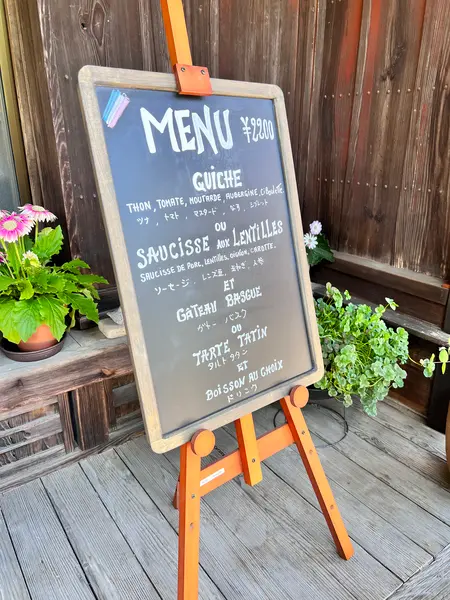 MENU ¥2200
QUICHE
THON, TOMATE, MOUTRADE, AUBERGINE, CIBOULETTE
ツナ , トマト , マスタード , ナス , シブレット
OU
SAUCISSE AUX LENTILLES
SAUCISSE DE PORC, LENTILLES, OIGNON, CAROTTE.
ソーセージ . レンズ豆 . 玉ねぎ . 人参
ET
GÂTEAU BASQUE
ガトー バスク
OU
TARTE TATIN
タルトタタン
ET
BOISSON AU CHOIX
ドリンク